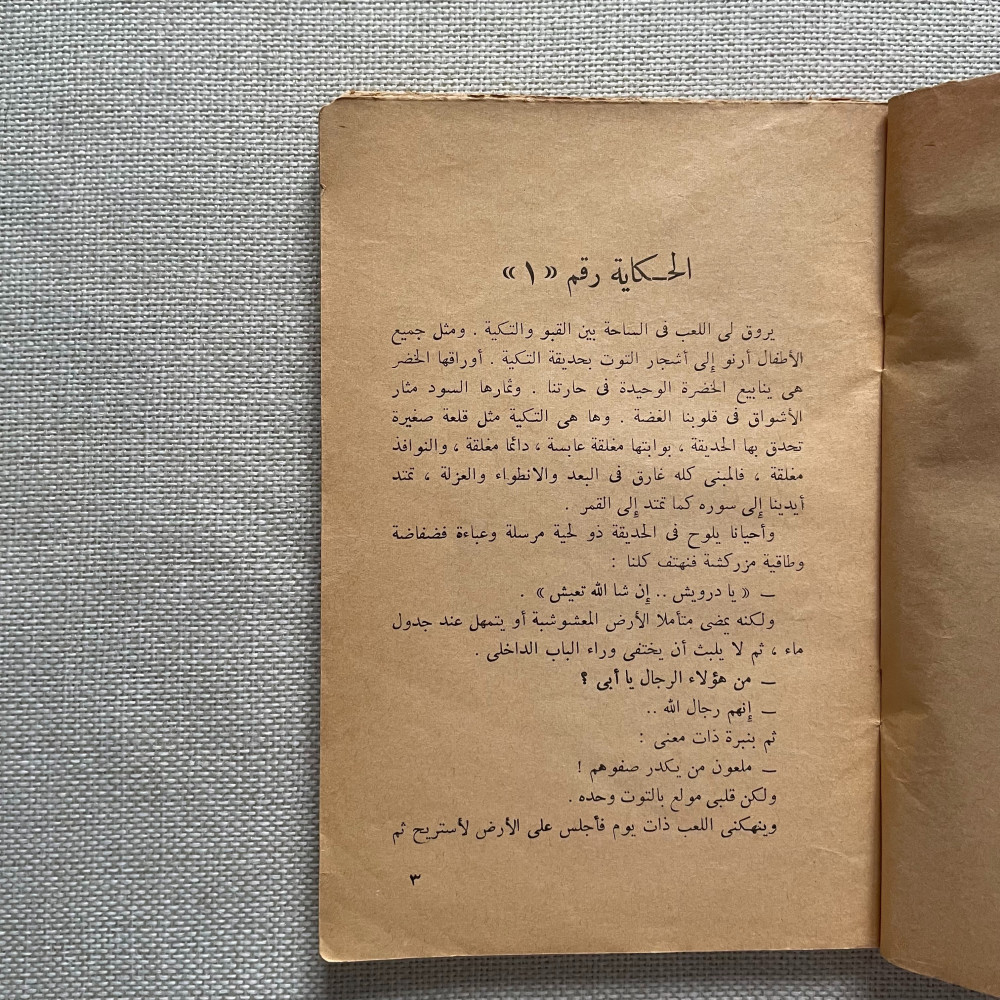 الحكاية رقم «١»
يروق لى اللعب فى الساحة بين القبو والتكية . ومثل جميع
الأطفال أرنو إلى أشجار التوت بحديقة التكية . أوراقها الخضر
هى ينابيع الخضرة الوحيدة فى حارتنا . وثمارها السود مثار
الأشواق فى قلوبنا الغضة . وها هى التكية مثل قلعة صغيرة
تحدق بها الحديقة ، بوابتها مغلقة عابسة ، دائما مغلقة ، والنوافذ
مغلقة ، فالمبنى كله غارق فى البعد والانطواء والعزلة ، تمتد
أيدينا إلى سوره كما تمتد إلى القمر .
وأحيانا يلوح فى الحديقة ذو لحية مرسلة وعباءة فضفاضة
وطاقية مزركشة فنهتف كلنا :
ــ « يا درويش .. إن شا الله تعيش » .
ولكنه يمضى متأملا الأرض المعشوشبة أو يتمهل عند جدول
ماء ، ثم لا يلبث أن يختفى وراء الباب الداخلى .
ــ من هؤلاء الرجال يا أبى ؟
ــ إنهم رجال الله ..
ثم بنبرة ذات معنى :
ــ ملعون من يكدر صفوهم !
ولكن قلبى مولع بالتوت وحده .
وينهكنى اللعب ذات يوم فأجلس على الأرض لأستريح ثم
٣